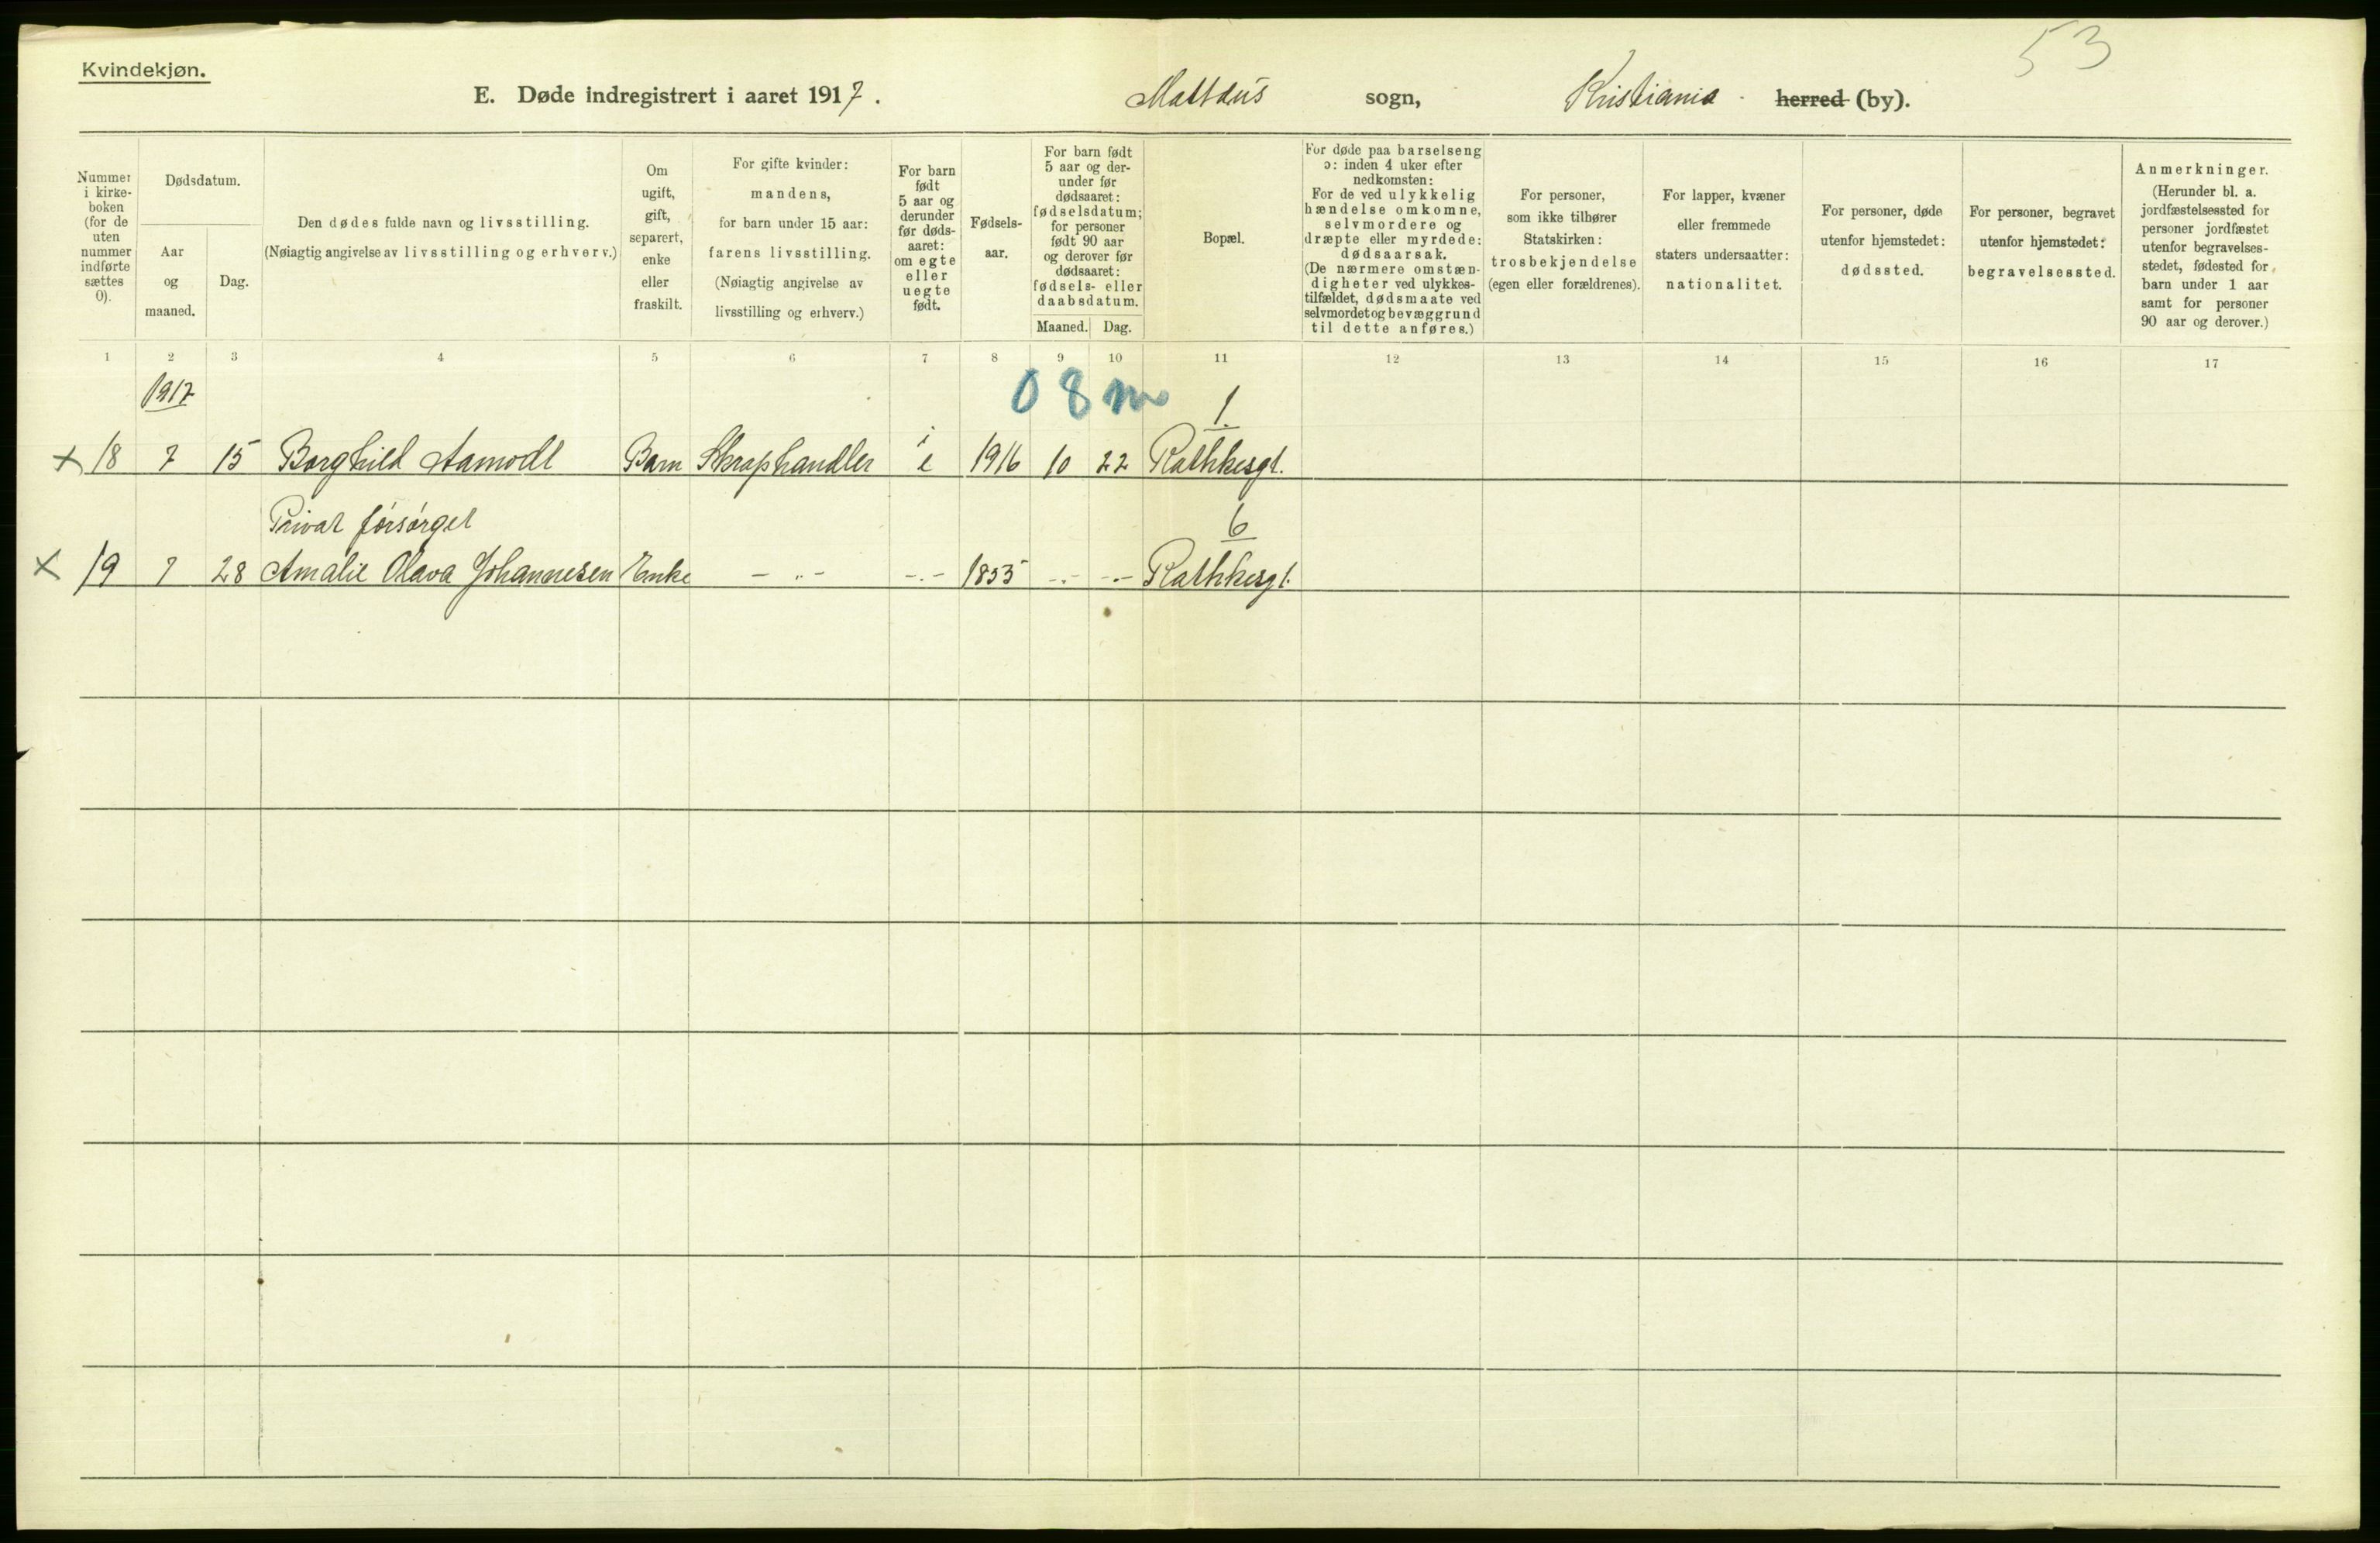 53
Kvindekjøn.
E. Døde indregistrert i aaret 1917. Mattæus sogn, Kristiania herred (by).
Nummer
i kirke-
boken
(for de
uten
nummer
indførte
sættes
0).
Dødsdatum.
Aar
og
maaned.
Dag.
Den dødes fulde navn og livsstilling.
(Nøiagtig angivelse av livsstilling og erhverv.)
Om
ugift,
gift,
separert,
enke
eller
fraskilt.
For gifte kvinder:
mandens,
for barn under 15 aar:
farens livsstilling.
(Nøiagtig angivelse av
livsstilling og erhverv.)
For barn
født
5 aar og
derunder
før døds-
aaret:
om egte
eller
uegte
født.
Fødsels-
aar.
For barn født
5 aar og der-
under før
dødsaaret:
fødselsdatum;
for personer
født 90 aar
og derover før
dødsaaret:
fødsels- eller
daabsdatum.
Maaned. Dag.
Bopæl.
For døde paa barselseng
ɔ: inden 4 uker efter
nedkomsten:
For de ved ulykkelig
hændelse omkomne,
selvmordere og
dræpte eller myrdede:
dødsaarsak.
(De nærmere omstæn-
digheter ved ulykkes-
tilfældet, dødsmaate ved
selvmordet og bevæggrund
til dette anføres.)
For personer,
som ikke tilhører
Statskirken:
trosbekjendelse
(egen eller forældrenes).
For lapper, kvæner
eller fremmede
staters undersaatter:
nationalitet.
For personer, døde
utenfor hjemstedet:
dødssted.
For personer, begravet
utenfor hjemstedet:
begravelsessted.
Anmerkninger.
(Herunder bl. a.
jordfæstelsessted for
personer jordfæstet
utenfor begravelses-
stedet, fødested for
barn under 1 aar
samt for personer
90 aar og derover.)
1 2 3 4 5 6 7 8 9 10 11 12 13 14 15 16 17
1917 08m 1.
x 18 7 15 Borghild Aamodt Barn Skraphandler e 1916 10 22 Rathkesgt.
Privat forsørget 6
x 19 7 28 Amalie Olava Johannesen Enke - " - - " - 1855 - " - - " - Rathkesgt.